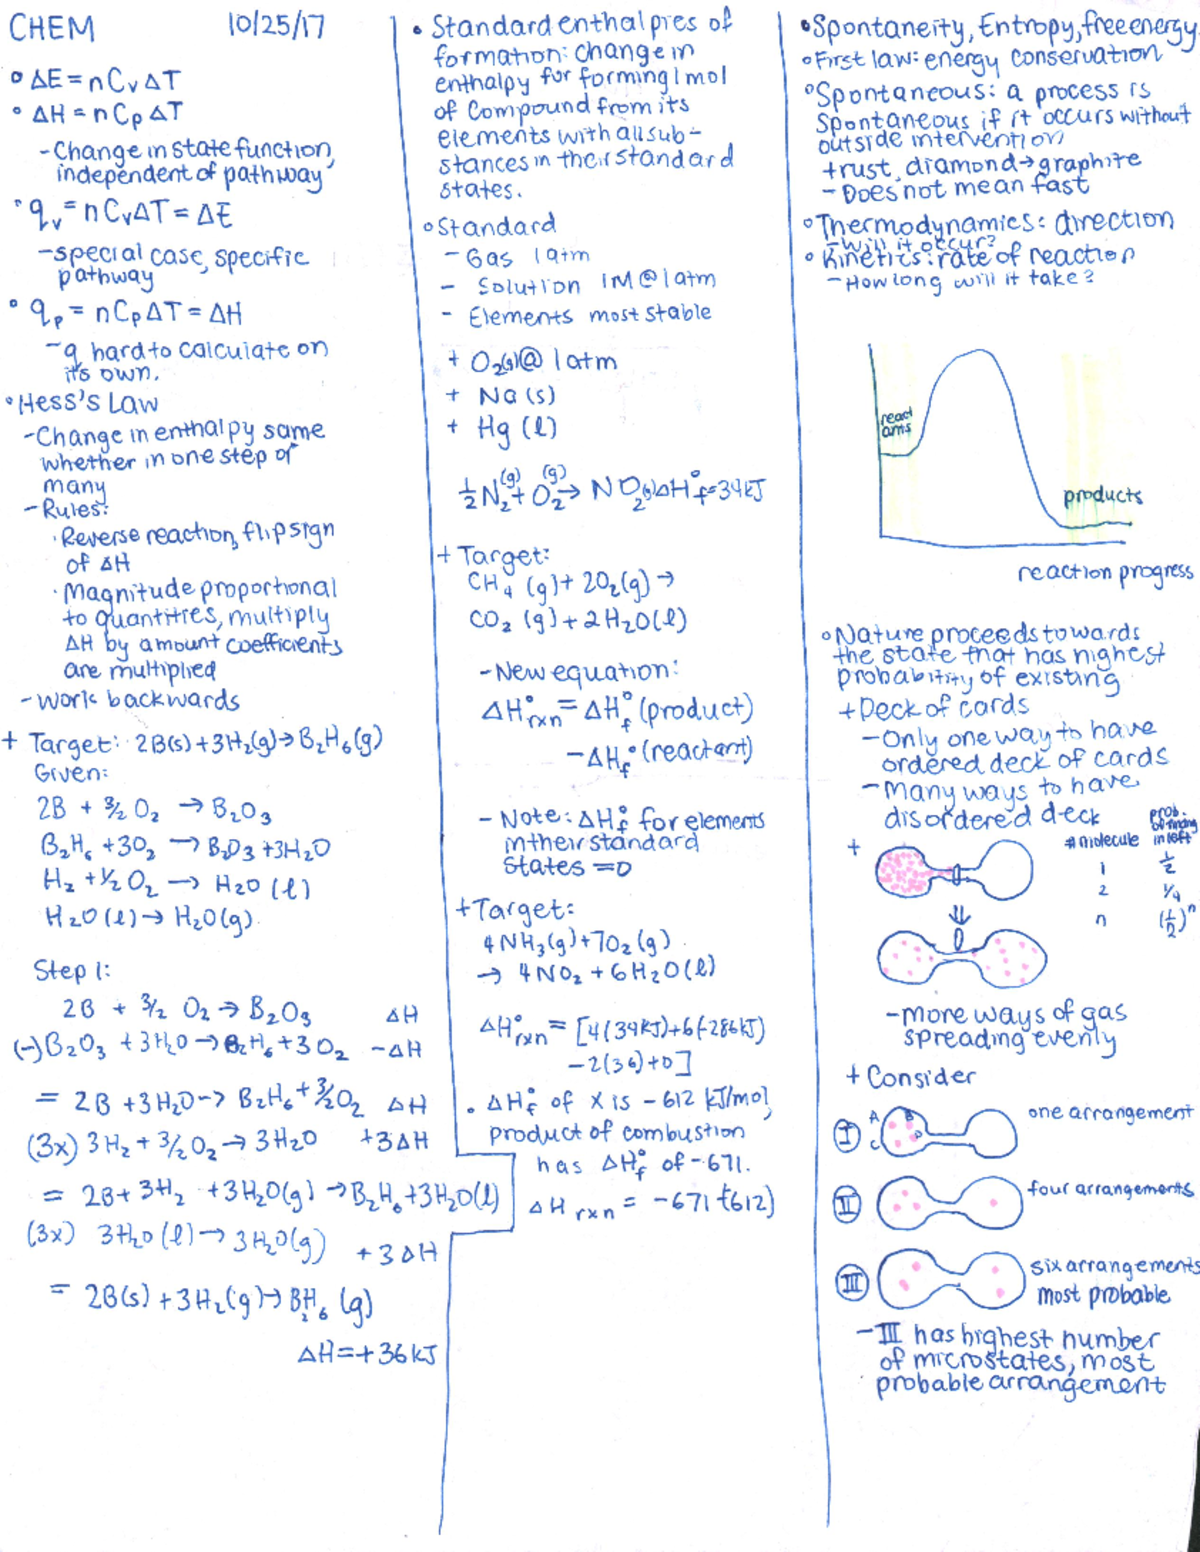 CHEM 10/25/17
° ΔE = nCvΔT
° ΔH = nCpΔT
- Change in state function,
independent of pathway
° qv = nCvΔT = ΔE
- special case, specific
pathway
° qp = nCpΔT = ΔH
- q hard to calculate on
it's own.
° Hess's Law
- Change in enthalpy same
whether in one step or
many
- Rules:
· Reverse reaction, flip sign
of ΔH
· Magnitude proportional
to quantities, multiply
ΔH by amount coefficients
are multiplied
- work backwards
+ Target: 2B(s)+3H₂(g)→B₂H₆(g)
Given:
2B + 3/2 O₂ → B₂O₃
B₂H₆ +3O₂ → B₂O₃+3H₂O
H₂ + ½ O₂ → H₂O (l)
H₂O (l) → H₂O(g)
Step 1:
2B + 3/2 O₂ → B₂O₃ ΔH
(-) B₂O₃ + 3H₂O → B₂H₆ + 3O₂ -ΔH
= 2B + 3H₂O -> B₂H₆ + 3/2 O₂ ΔH
(3x) 3H₂ + 3/2 O₂ → 3H₂O +3ΔH
= 2B+ 3H₂ +3H₂O(g) → B₂H₆+3H₂O(l)
(3x) 3H₂O (l) → 3H₂O(g) +3ΔH
= 2B(s) + 3H₂(g) → B₂H₆ (g)
ΔH = +36 kJ
• Standard enthalpies of
formation: change in
enthalpy for forming 1 mol
of compound from its
elements with all sub-
stances in their standard
states.
° Standard
- Gas 1 atm
- Solution 1M @ 1 atm
- Elements most stable
+ O₂(g) @ 1 atm
+ Na (s)
+ Hg (l)
½N₂(g) + O₂(g) → NO₂(g) ΔH°f = 34kJ
+ Target:
CH₄ (g) + 2O₂(g) →
CO₂ (g) + 2H₂O(l)
- New equation:
ΔH°rxn = ΔH°f (product)
- ΔH°f (reactant)
- Note: ΔH°f for elements
in their standard
states = 0
+ Target:
4NH₃(g)+7O₂(g)
→ 4NO₂ + 6H₂O(l)
ΔH°rxn = [4(34kJ)+6(-286kJ)
- 2(36)+0]
• ΔH°f of X is -612 kJ/mol,
product of combustion
has ΔH°f of -671.
ΔHrxn = -671-(-612)
• Spontaneity, Entropy, free energy
° First law: energy conservation
° Spontaneous: a process is
spontaneous if it occurs without
outside intervention
+ rust, diamond → graphite
- Does not mean fast
° Thermodynamics: direction
- Will it occur?
° Kinetics: rate of reaction
- How long will it take?
react
ants
products
reaction progress
° Nature proceeds towards
the state that has highest
probability of existing
+ Deck of cards
- Only one way to have
ordered deck of cards
- Many ways to have
disordered deck
+ # molecule prob. of finding in left
1 ½
2 ¼
n (½)ⁿ
- more ways of gas
spreading evenly
+ Consider
I A B C D one arrangement
II four arrangements
III six arrangements
most probable
- III has highest number
of microstates, most
probable arrangement